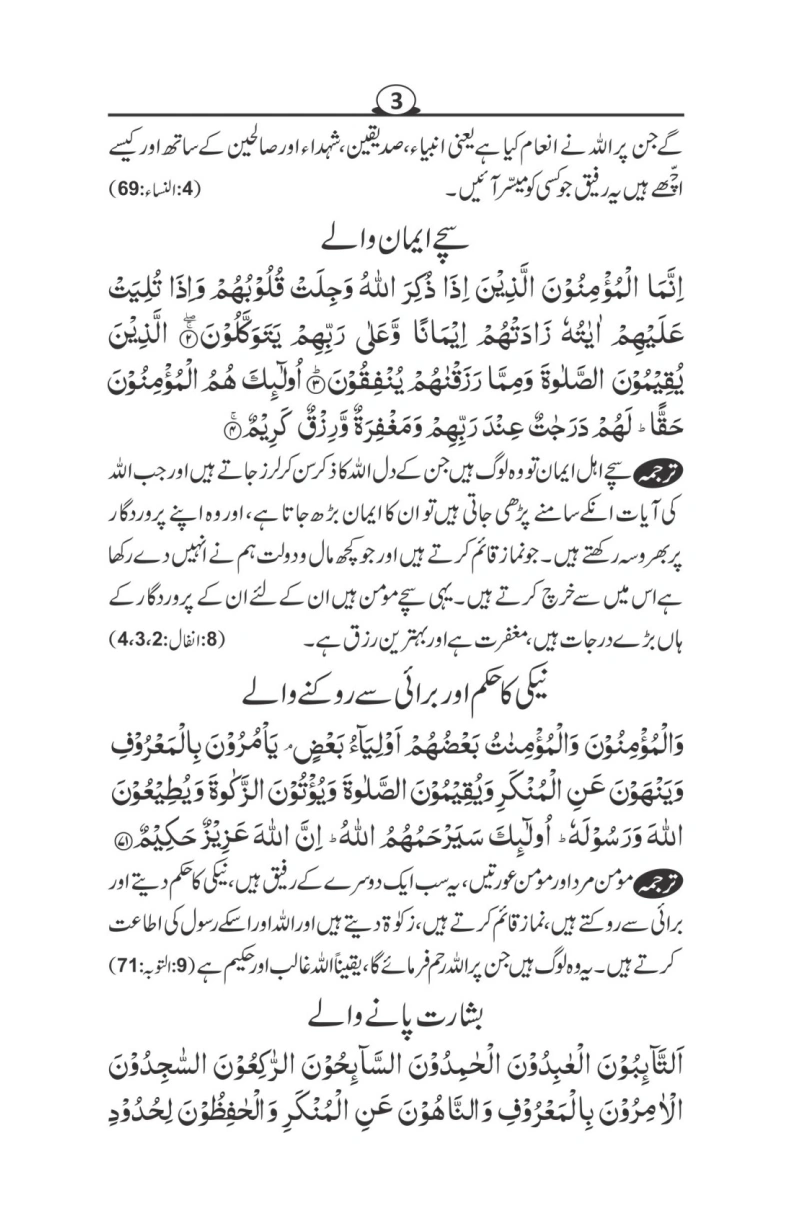 3
گے جن پر اللہ نے انعام کیا ہے یعنی انبیاء، صدیقین، شہداء اور صالحین کے ساتھ اور کیسے
اچھے ہیں یہ رفیق جو کسی کو میسّر آئیں۔ (4:النساء:69)
سچے ایمان والے
اِنَّمَا الْمُؤْمِنُوْنَ الَّذِيْنَ اِذَا ذُكِرَ اللّٰهُ وَجِلَتْ قُلُوْبُهُمْ وَاِذَا تُلِيَتْ
عَلَيْهِمْ اٰيٰتُهٗ زَادَتْهُمْ اِيْمَانًا وَّعَلٰى رَبِّهِمْ يَتَوَكَّلُوْنَ ۚۖ﴿۲﴾ الَّذِيْنَ
يُقِيْمُوْنَ الصَّلٰوةَ وَمِمَّا رَزَقْنٰهُمْ يُنْفِقُوْنَ ؕ﴿۳﴾ اُولٰٓئِكَ هُمُ الْمُؤْمِنُوْنَ
حَقًّا ؕ لَهُمْ دَرَجٰتٌ عِنْدَ رَبِّهِمْ وَمَغْفِرَةٌ وَّرِزْقٌ كَرِيْمٌ ۚ﴿۴﴾
ترجمہ سچے اہل ایمان تو وہ لوگ ہیں جن کے دل اللہ کا ذکر سن کر لرز جاتے ہیں اور جب اللہ
کی آیات انکے سامنے پڑھی جاتی ہیں تو ان کا ایمان بڑھ جاتا ہے، اور وہ اپنے پروردگار
پر بھروسہ رکھتے ہیں۔ جو نماز قائم کرتے ہیں اور جو کچھ مال و دولت ہم نے انہیں دے رکھا
ہے اس میں سے خرچ کرتے ہیں۔ یہی سچے مومن ہیں ان کے لئے ان کے پروردگار کے
ہاں بڑے درجات ہیں، مغفرت ہے اور بہترین رزق ہے۔ (8:انفال:4،3،2)
نیکی کا حکم اور برائی سے روکنے والے
وَالْمُؤْمِنُوْنَ وَالْمُؤْمِنٰتُ بَعْضُهُمْ اَوْلِيَآءُ بَعْضٍ ۘ يَاْمُرُوْنَ بِالْمَعْرُوْفِ
وَيَنْهَوْنَ عَنِ الْمُنْكَرِ وَيُقِيْمُوْنَ الصَّلٰوةَ وَيُؤْتُوْنَ الزَّكٰوةَ وَيُطِيْعُوْنَ
اللّٰهَ وَرَسُوْلَهٗ ؕ اُولٰٓئِكَ سَيَرْحَمُهُمُ اللّٰهُ ؕ اِنَّ اللّٰهَ عَزِيْزٌ حَكِيْمٌ ﴿۷۱﴾
ترجمہ مومن مرد اور مومن عورتیں، یہ سب ایک دوسرے کے رفیق ہیں، نیکی کا حکم دیتے اور
برائی سے روکتے ہیں، نماز قائم کرتے ہیں، زکوٰۃ دیتے ہیں اور اللہ اور اسکے رسول کی اطاعت
کرتے ہیں۔ یہ وہ لوگ ہیں جن پر اللہ رحم فرمائے گا، یقیناً اللہ غالب اور حکیم ہے (9:التوبہ:71)
بشارت پانے والے
اَلتَّآئِبُوْنَ الْعٰبِدُوْنَ الْحٰمِدُوْنَ السَّآئِحُوْنَ الرّٰكِعُوْنَ السّٰجِدُوْنَ
الْاٰمِرُوْنَ بِالْمَعْرُوْفِ وَالنَّاهُوْنَ عَنِ الْمُنْكَرِ وَالْحٰفِظُوْنَ لِحُدُوْدِ